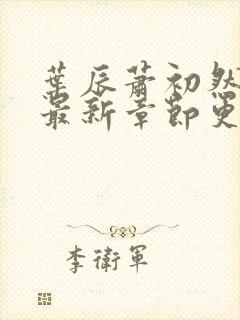 葉辰蕭初然
最新章節更
李衛軍